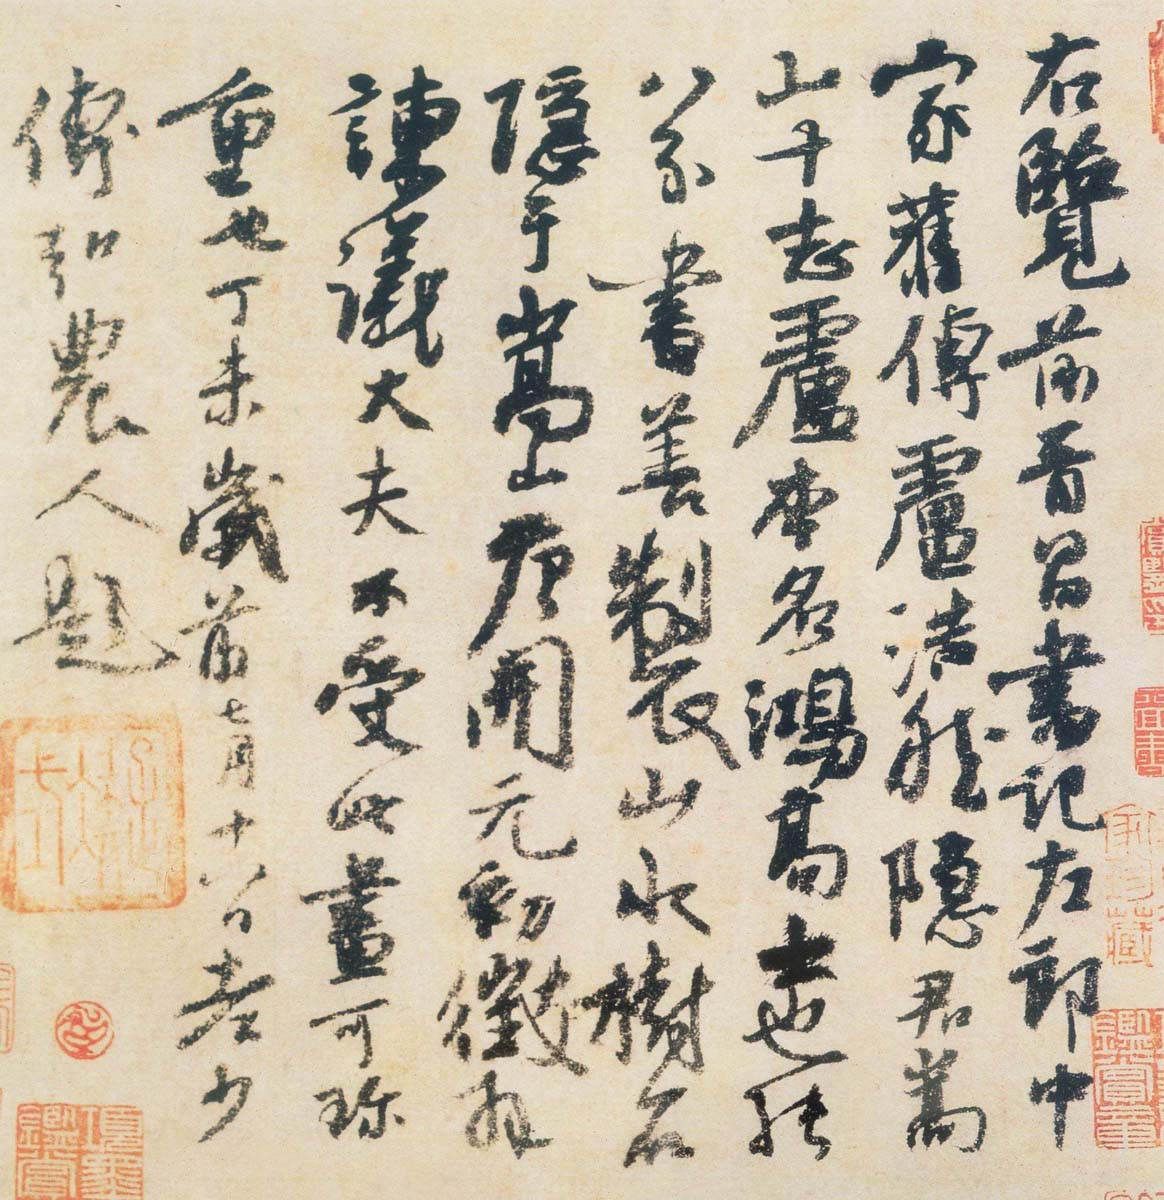 右覽前晉昌書記左郎中
家舊傳盧浩然隱君嵩
山十志盧本名鴻高士也能
八分書善製山水樹石
隱于嵩山唐開元初徵拜
諫議大夫不受此畫可珍
重也丁未歲前七月十八日老少
傅弘農人題